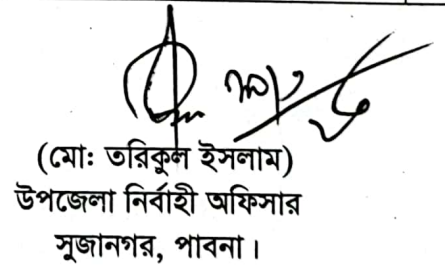 (মো: তরিকুল ইসলাম)
উপজেলা নির্বাহী অফিসার
সুজানগর, পাবনা।